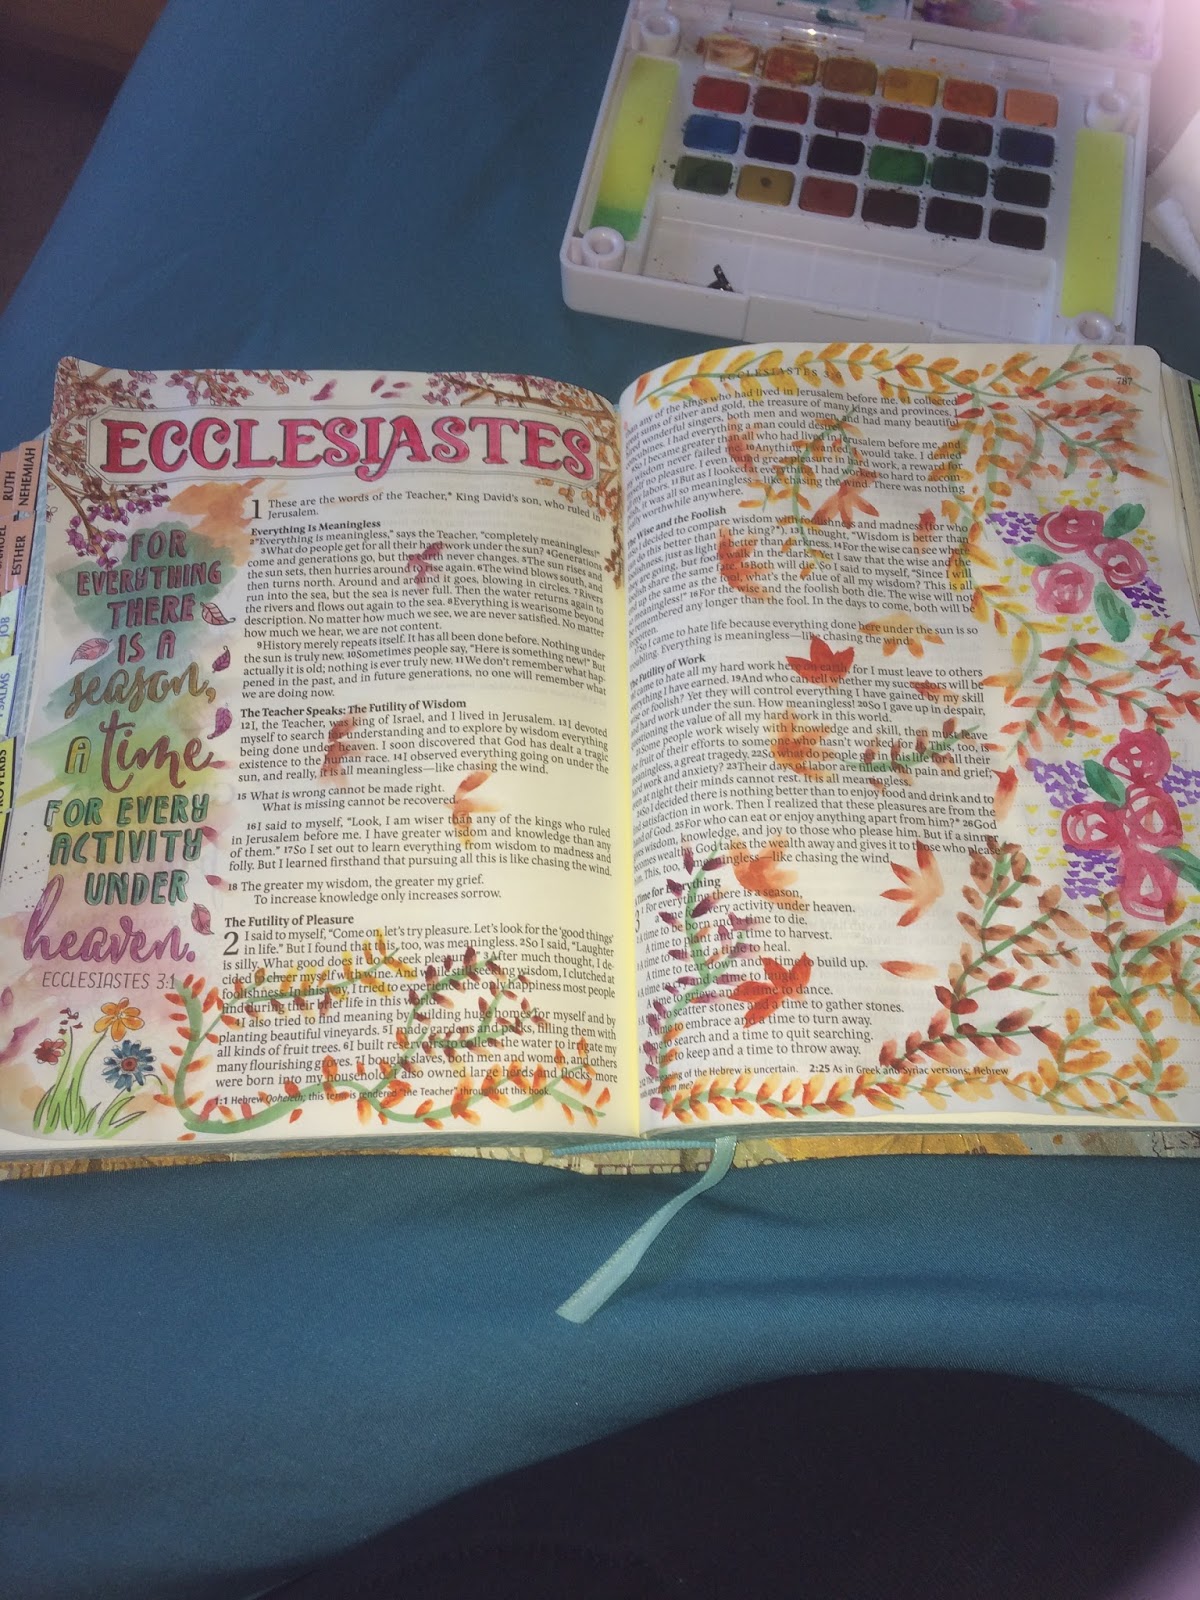 RUTH
NEHEMIAH
ESTHER
JOB
PSALMS
PROVERBS
ECCLESIASTES
FOR
EVERYTHING
THERE
IS A
season,
A time
FOR EVERY
ACTIVITY
UNDER
heaven.
ECCLESIASTES 3:1
1 These are the words of the Teacher,* King David's son, who ruled in
Jerusalem.
Everything Is Meaningless
2 "Everything is meaningless," says the Teacher, "completely meaningless!"
3 What do people get for all their hard work under the sun? 4 Generations
come and generations go, but the earth never changes. 5 The sun rises and
the sun sets, then hurries around to rise again. 6 The wind blows south, and
then turns north. Around and around it goes, blowing in circles. 7 Rivers
run into the sea, but the sea is never full. Then the water returns again to
the rivers and flows out again to the sea. 8 Everything is wearisome beyond
description. No matter how much we see, we are never satisfied. No matter
how much we hear, we are not content.
9 History merely repeats itself. It has all been done before. Nothing under
the sun is truly new. 10 Sometimes people say, "Here is something new!" But
actually it is old; nothing is ever truly new. 11 We don't remember what hap-
pened in the past, and in future generations, no one will remember what
we are doing now.
The Teacher Speaks: The Futility of Wisdom
12 I, the Teacher, was king of Israel, and I lived in Jerusalem. 13 I devoted
myself to search for understanding and to explore by wisdom everything
being done under heaven. I soon discovered that God has dealt a tragic
existence to the human race. 14 I observed everything going on under the
sun, and really, it is all meaningless—like chasing the wind.
15 What is wrong cannot be made right.
What is missing cannot be recovered.
16 I said to myself, "Look, I am wiser than any of the kings who ruled
in Jerusalem before me. I have greater wisdom and knowledge than any
of them." 17 So I set out to learn everything from wisdom to madness and
folly. But I learned firsthand that pursuing all this is like chasing the wind.
18 The greater my wisdom, the greater my grief.
To increase knowledge only increases sorrow.
The Futility of Pleasure
2 I said to myself, "Come on, let's try pleasure. Let's look for the 'good things'
in life." But I found that this, too, was meaningless. 2 So I said, "Laughter
is silly. What good does it do to seek pleasure?" 3 After much thought, I de-
cided to cheer myself with wine. And while still seeking wisdom, I clutched at
foolishness. In this way, I tried to experience the only happiness most people
find during their brief life in this world.
4 I also tried to find meaning by building huge homes for myself and by
planting beautiful vineyards. 5 I made gardens and parks, filling them with
all kinds of fruit trees. 6 I built reservoirs to collect the water to irrigate my
many flourishing groves. 7 I bought slaves, both men and women, and others
were born into my household. I also owned large herds and flocks, more
1:1 Hebrew Qoheleth; this term is rendered "the Teacher" throughout this book.
ECCLESIASTES 3:6
787
than any of the kings who had lived in Jerusalem before me. 8 I collected
great sums of silver and gold, the treasure of many kings and provinces. I
hired wonderful singers, both men and women, and had many beautiful
concubines. I had everything a man could desire!
9 So I became greater than all who had lived in Jerusalem before me, and
my wisdom never failed me. 10 Anything I wanted, I would take. I denied
myself no pleasure. I even found great pleasure in hard work, a reward for
all my labors. 11 But as I looked at everything I had worked so hard to accom-
plish, it was all so meaningless—like chasing the wind. There was nothing
really worthwhile anywhere.
The Wise and the Foolish
So I decided to compare wisdom with foolishness and madness (for who
can do this better than I, the king?*). 13 I thought, "Wisdom is better than
foolishness, just as light is better than darkness. 14 For the wise can see where
they are going, but fools walk in the dark." Yet I saw that the wise and the
foolish share the same fate. 15 Both will die. So I said to myself, "Since I will
end up the same as the fool, what's the value of all my wisdom? This is all
so meaningless!" 16 For the wise and the foolish both die. The wise will not
be remembered any longer than the fool. In the days to come, both will be
forgotten.
17 So I came to hate life because everything done here under the sun is so
troubling. Everything is meaningless—like chasing the wind.
The Futility of Work
I came to hate all my hard work here on earth, for I must leave to others
everything I have earned. 19 And who can tell whether my successors will be
wise or foolish? Yet they will control everything I have gained by my skill
and hard work under the sun. How meaningless! 20 So I gave up in despair,
questioning the value of all my hard work in this world.
Some people work wisely with knowledge and skill, then must leave
the fruit of their efforts to someone who hasn't worked for it. This, too, is
meaningless, a great tragedy. 22 So what do people get in this life for all their
hard work and anxiety? 23 Their days of labor are filled with pain and grief;
even at night their minds cannot rest. It is all meaningless.
24 So I decided there is nothing better than to enjoy food and drink and to
find satisfaction in work. Then I realized that these pleasures are from the
hand of God. 25 For who can eat or enjoy anything apart from him?* 26 God
gives wisdom, knowledge, and joy to those who please him. But if a sinner
becomes wealthy, God takes the wealth away and gives it to those who please
him. This, too, is meaningless—like chasing the wind.
A Time for Everything
3 1 For everything there is a season,
a time for every activity under heaven.
2 A time to be born and a time to die.
A time to plant and a time to harvest.
3 A time to kill and a time to heal.
A time to tear down and a time to build up.
4 A time to cry and a time to laugh.
A time to grieve and a time to dance.
5 A time to scatter stones and a time to gather stones.
A time to embrace and a time to turn away.
6 A time to search and a time to quit searching.
A time to keep and a time to throw away.
2:12 The meaning of the Hebrew is uncertain. 2:25 As in Greek and Syriac versions; Hebrew
from me?